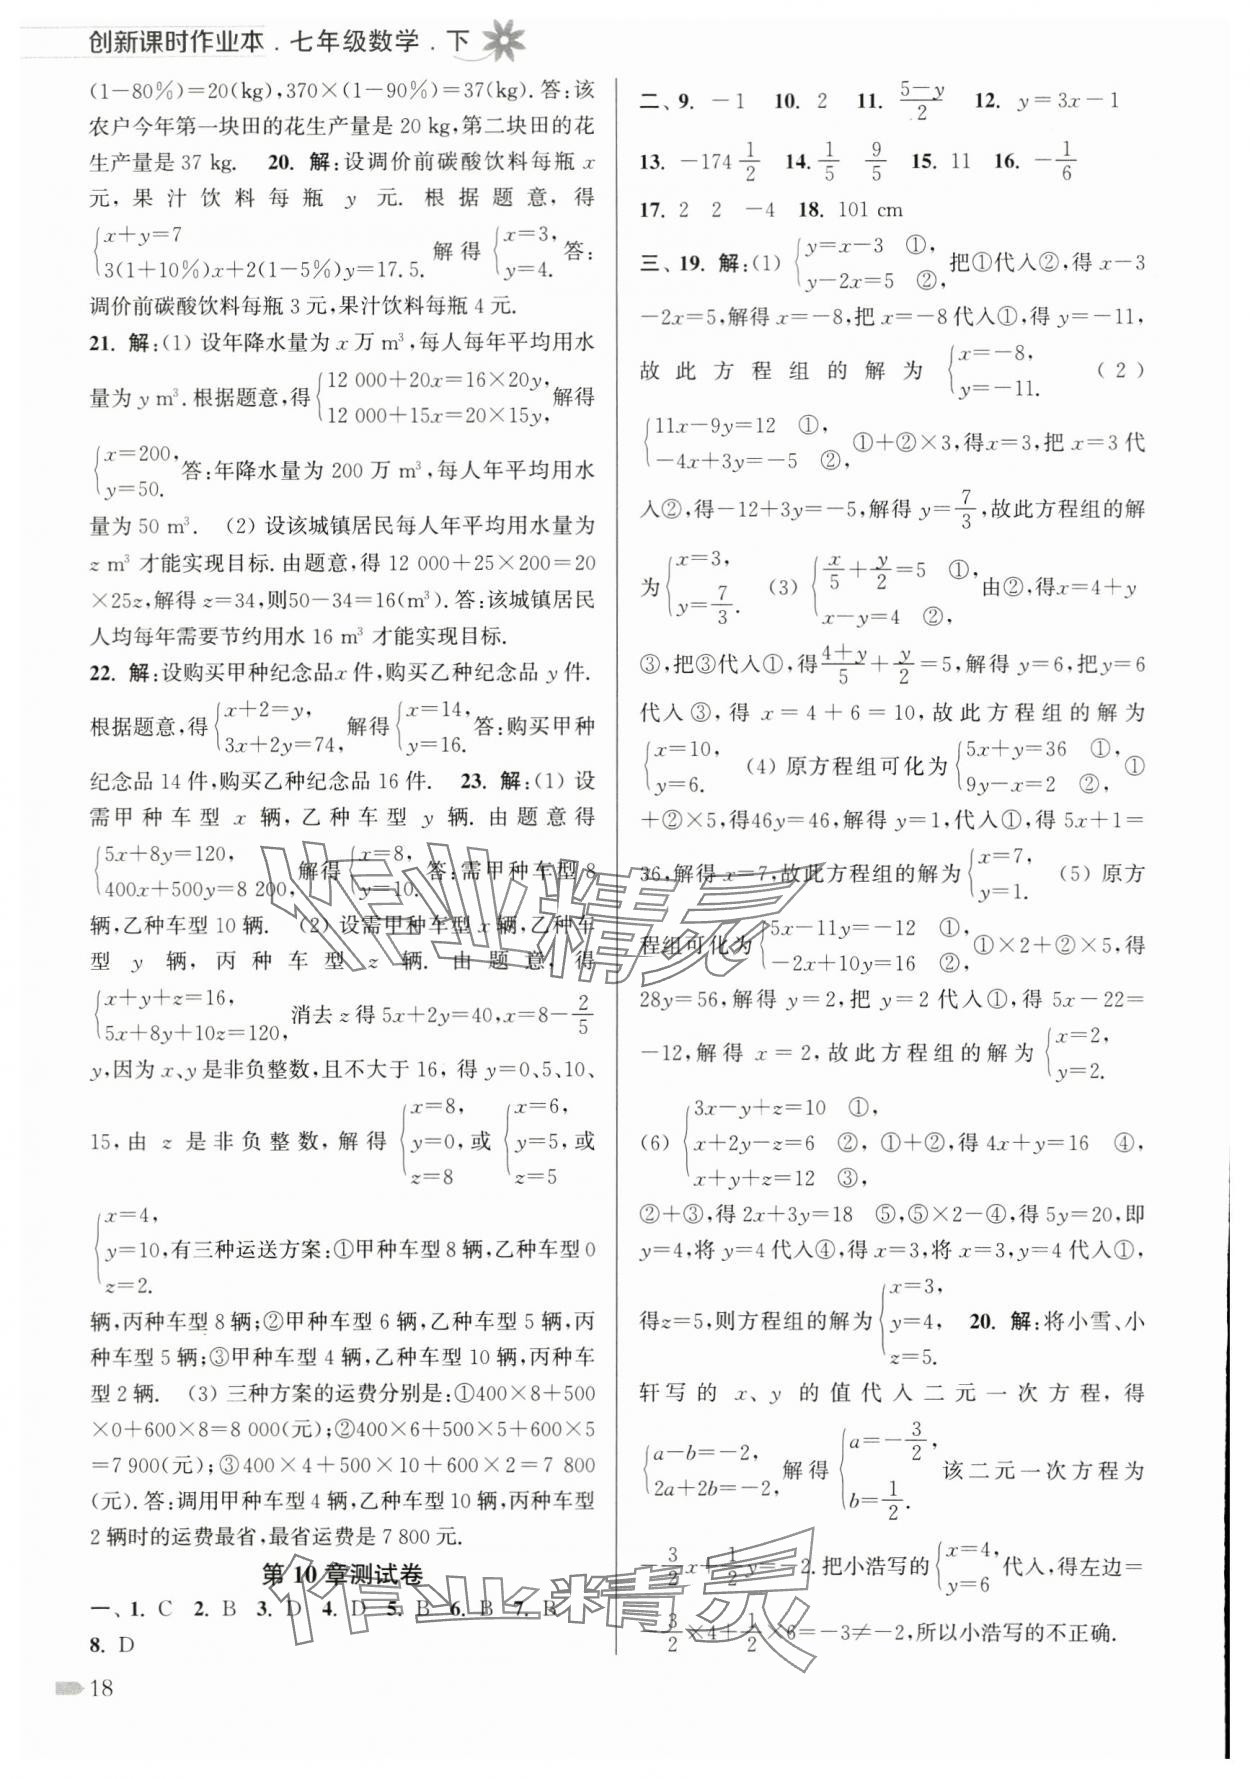 创新课时作业本．七年级数学．下
(1－80％)＝20(kg),370×(1－90％)＝37(kg).答:该
农户今年第一块田的花生产量是 20 kg,第二块田的花
生产量是 37 kg.　20. 解:设调价前碳酸饮料每瓶 x
元,果汁饮料每瓶 y 元. 根据题意,得
{x＋y＝7
3(1＋10％)x＋2(1－5％)y＝17.5. 解得 {x＝3,
y＝4. 答:
调价前碳酸饮料每瓶 3 元,果汁饮料每瓶 4 元.
21. 解:(1) 设年降水量为 x 万 m³,每人每年平均用水
量为 y m³.根据题意,得{12 000＋20x＝16×20y,
12 000＋15x＝20×15y, 解得
{x＝200,
y＝50. 答:年降水量为 200 万 m³,每人年平均用水
量为 50 m³.　(2) 设该城镇居民每人年平均用水量为
z m³ 才能实现目标.由题意,得 12 000＋25×200＝20
×25z,解得 z＝34,则50－34＝16(m³).答:该城镇居民
人均每年需要节约用水 16 m³ 才能实现目标.
22. 解:设购买甲种纪念品x 件,购买乙种纪念品 y 件.
根据题意,得{x＋2＝y,
3x＋2y＝74, 解得{x＝14,
y＝16. 答:购买甲种
纪念品 14 件,购买乙种纪念品 16 件.　23. 解:(1) 设
需甲种车型 x 辆,乙种车型 y 辆. 由题意得
{5x＋8y＝120,
400x＋500y＝8 200, 解得{x＝8,
y＝10. 答:需甲种车型 8
辆,乙种车型 10 辆.　(2) 设需甲种车型 x 辆,乙种车
型 y 辆,丙种车型 z 辆. 由题意,得
{x＋y＋z＝16,
5x＋8y＋10z＝120, 消去 z 得 5x＋2y＝40,x＝8－2/5
y,因为 x、y 是非负整数,且不大于 16, 得 y＝0、5、10、
15,由 z 是非负整数,解得 {x＝8,
y＝0,
z＝8 或 {x＝6,
y＝5,
z＝5 或
{x＝4,
y＝10,
z＝2. 有三种运送方案:①甲种车型 8 辆,乙种车型 0
辆,丙种车型 8 辆;②甲种车型 6 辆,乙种车型 5 辆,丙
种车型 5 辆;③甲种车型 4 辆,乙种车型 10 辆,丙种车
型 2 辆.　(3) 三种方案的运费分别是:①400×8＋500
×0＋600×8＝8 000(元);②400×6＋500×5＋600×5
＝7 900(元);③400×4＋500×10＋600×2＝7 800
(元).答:调用甲种车型 4 辆,乙种车型 10 辆,丙种车型
2 辆时的运费最省,最省运费是 7 800 元.
第 10 章测试卷
一、1. C　2. B　3. D　4. D　5. B　6. B　7. B
8. D
18
二、9. －1　10. 2　11. (5－y)/2　12. y＝3x－1
13. －174 1/2　14. 1/5　9/5　15. 11　16. －1/6
17. 2　2　－4　18. 101 cm
三、19. 解:(1) {y＝x－3　①,
y－2x＝5　②, 把①代入②,得 x－3
－2x＝5,解得 x＝－8,把 x＝－8代入①,得 y＝－11,
故此方程组的解为 {x＝－8,
y＝－11.　(2)
{11x－9y＝12　①,
－4x＋3y＝－5　②, ①＋②×3,得x＝3,把 x＝3 代
入②,得－12＋3y＝－5,解得 y＝7/3,故此方程组的解
为{x＝3,
y＝7/3.　(3) {x/5＋y/2＝5　①,
x－y＝4　②, 由②,得x＝4＋y
③,把③代入①,得(4＋y)/5＋y/2＝5,解得 y＝6,把y＝6
代入③,得 x＝4＋6＝10,故此方程组的解为
{x＝10,
y＝6.　(4) 原方程组可化为{5x＋y＝36　①,
9y－x＝2　②, ①
＋②×5,得46y＝46,解得 y＝1,代入①,得 5x＋1＝
36,解得 x＝7,故此方程组的解为{x＝7,
y＝1.　(5) 原方
程组可化为{5x－11y＝－12　①,
－2x＋10y＝16　②, ①×2＋②×5,得
28y＝56,解得 y＝2,把 y＝2 代入①,得 5x－22＝
－12,解得 x＝2,故此方程组的解为{x＝2,
y＝2.
(6) {3x－y＋z＝10　①,
x＋2y－z＝6　②,
x＋y＋z＝12　③, ①＋②,得 4x＋y＝16　④,
②＋③,得 2x＋3y＝18　⑤,⑤×2－④,得 5y＝20,即
y＝4,将 y＝4 代入④,得 x＝3,将 x＝3,y＝4 代入①,
得z＝5,则方程组的解为{x＝3,
y＝4,
z＝5.　20. 解:将小雪、小
轩写的 x、y 的值代入二元一次方程,得
{a－b＝－2,
2a＋2b＝－2, 解得{a＝－3/2,
b＝1/2. 该二元一次方程为
－3/2x＋1/2y＝－2.把小浩写的{x＝4,
y＝6 代入,得左边＝
－3/2×4＋1/2×6＝－3≠－2,所以小浩写的不正确.
作业精灵
作业精灵